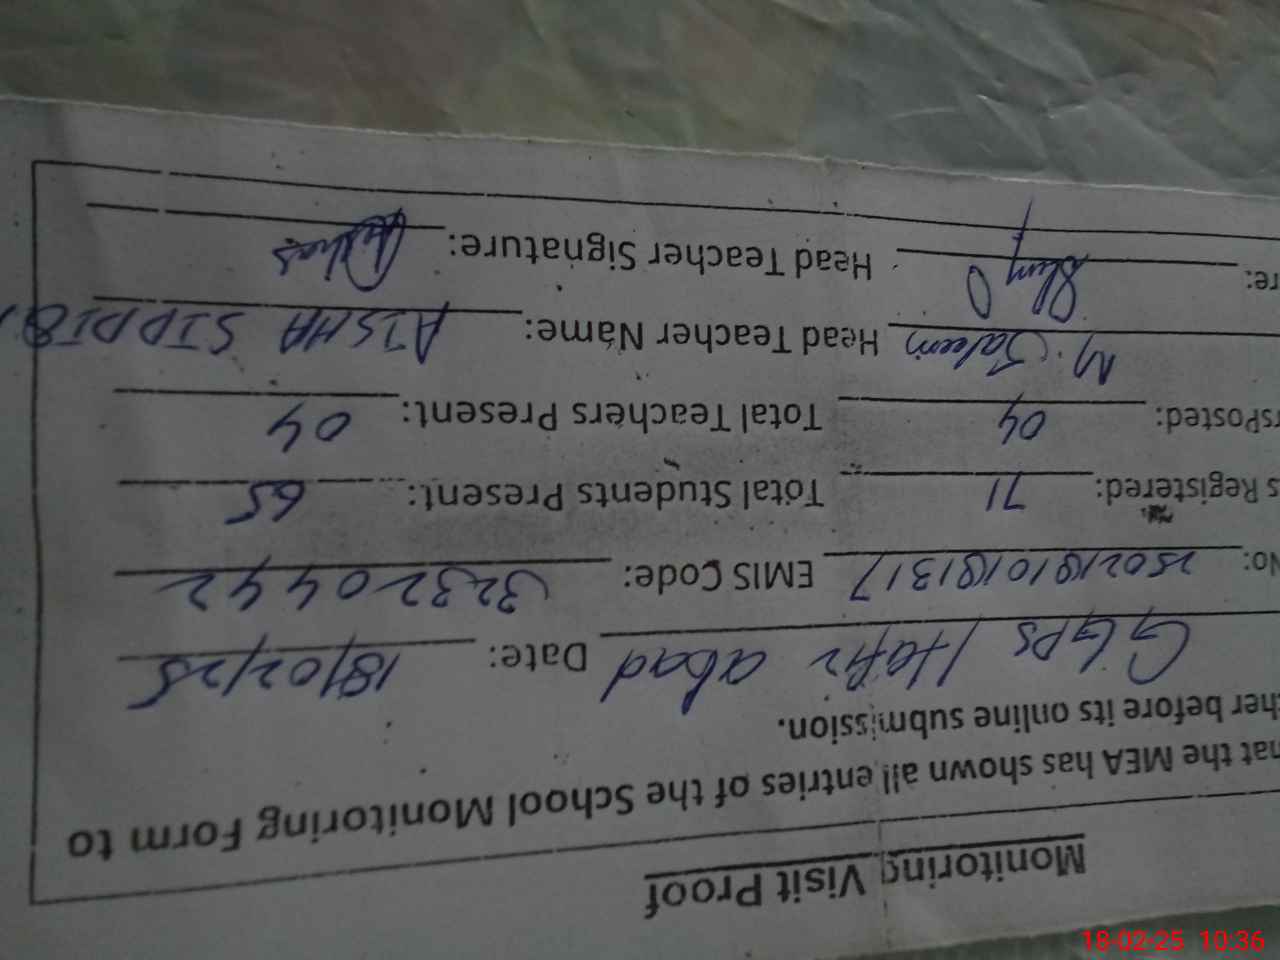 Monitoring Visit Proof
hat the MEA has shown all entries of the School Monitoring Form to
her before its online submission.
GGPS Hafiz abad Date: 18/02/25
No: EMIS Code: 32320442
s Registered: 71 Total Students Present: 65
rsPosted: 04 Total Teachers Present: 04
M. Saleem Head Teacher Name: AISHA SIDDIQI
re: Head Teacher Signature:
18-02-25 10:36